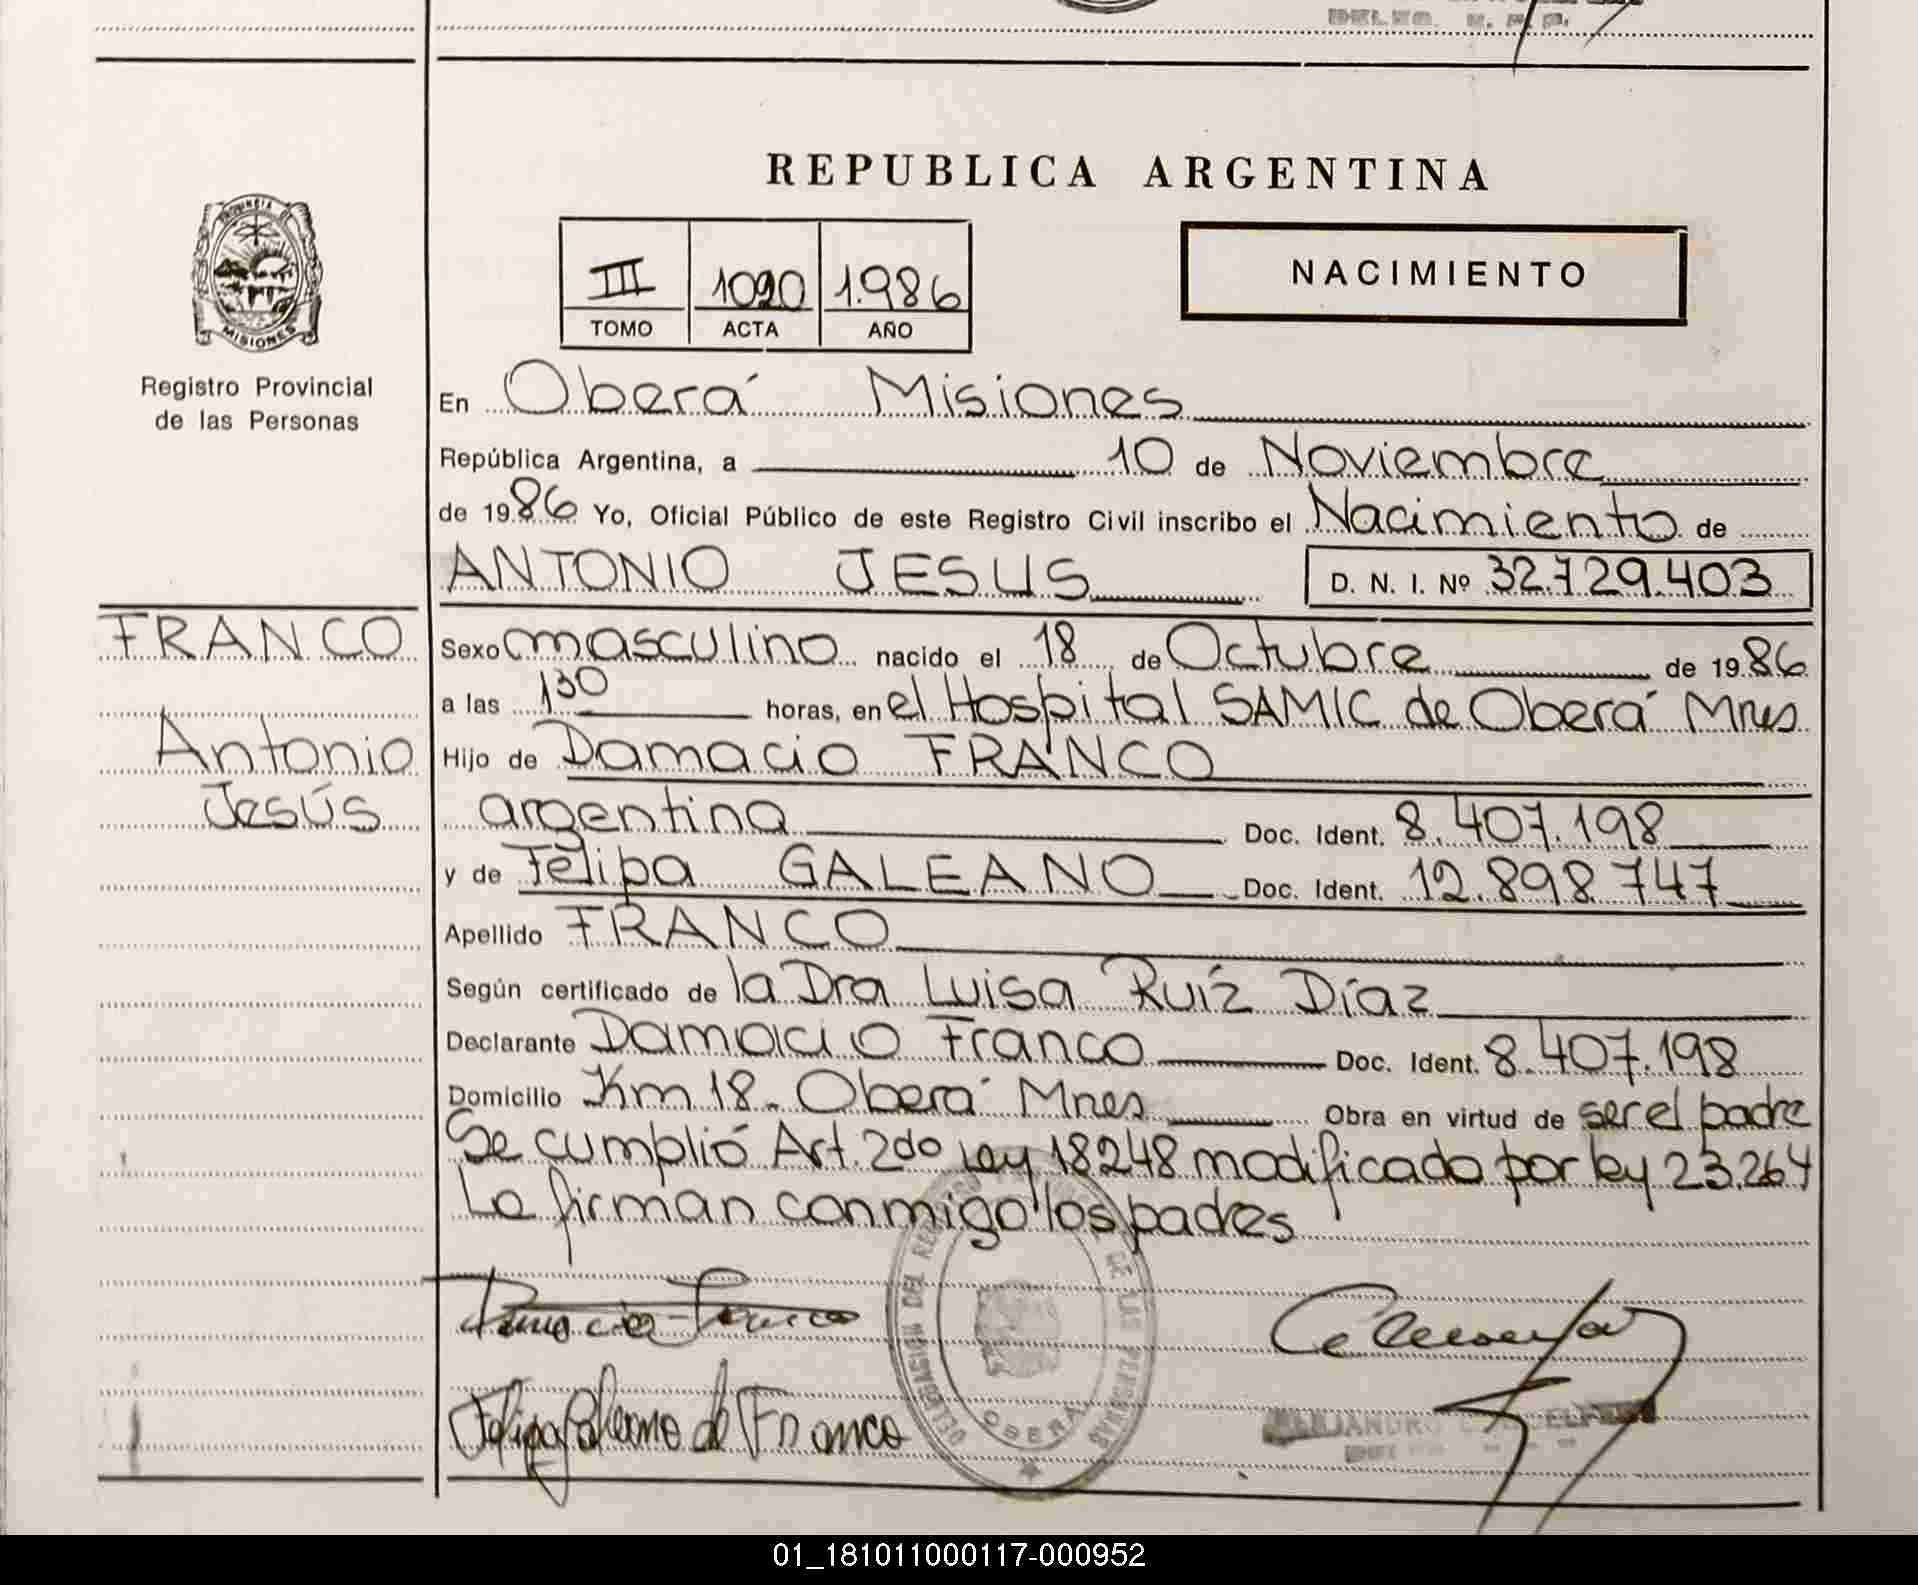 REPUBLICA ARGENTINA
PROVINCIA DE
MISIONES
Registro Provincial
de las Personas
III 1020 1.986
TOMO ACTA AÑO
NACIMIENTO
En Oberá Misiones
República Argentina, a 10 de Noviembre
de 1986 Yo, Oficial Público de este Registro Civil inscribo el Nacimiento de
ANTONIO JESUS D. N. I. Nº 32.729.403
FRANCO
Antonio
Jesús
Sexo masculino nacido el 18 de Octubre de 1986
a las 130 horas, en el Hospital SAMIC de Oberá Mnes
Hijo de Damacio FRANCO
argentina Doc. Ident. 8.407.198
y de Felipa GALEANO Doc. Ident. 12.898.747
Apellido FRANCO
Según certificado de la Dra Luisa Ruíz Díaz
Declarante Damacio Franco Doc. Ident. 8.407.198
Domicilio Km 18. Oberá Mnes Obra en virtud de ser el padre
Se cumplió Art. 2do ley 18248 modificado por ley 23.264
La firman conmigo los padres
Damacio Franco
Felipa Galeano de Franco
DELEGACION DEL REGISTRO DE LAS PERSONAS
OBERA
01_181011000117-000952